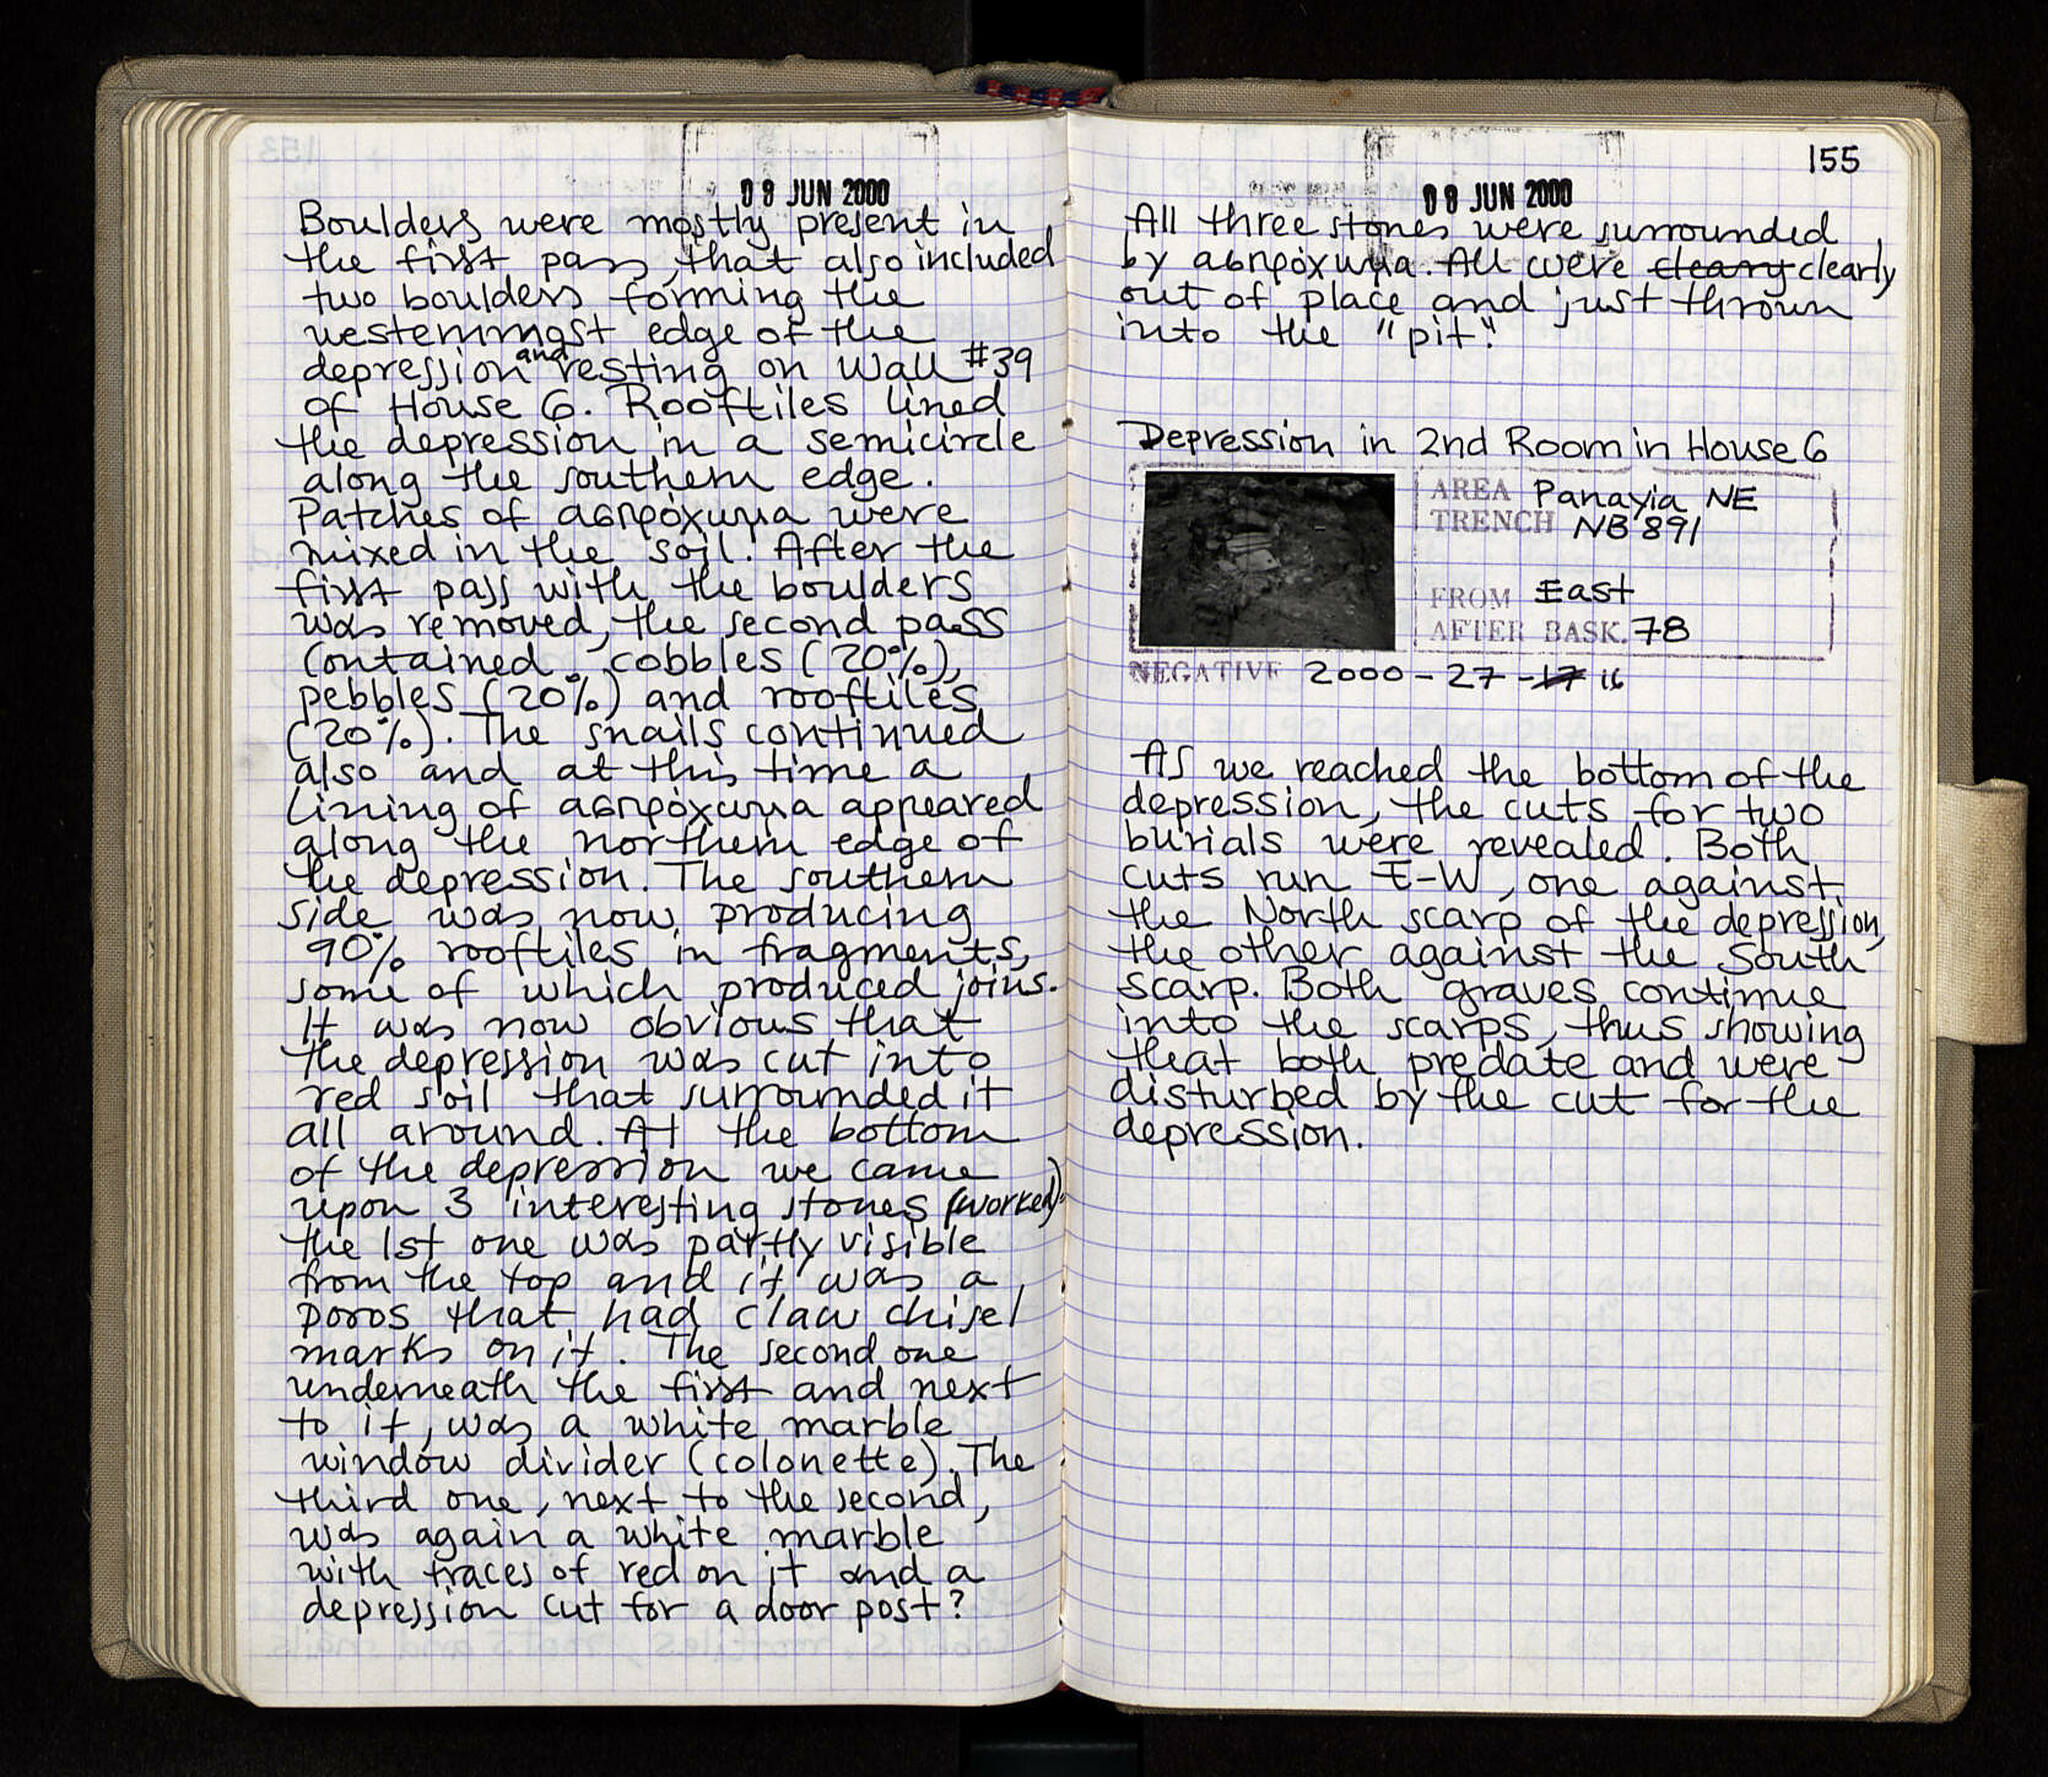 08 JUN 2000
Boulders were mostly present in
the first pass, that also included
two boulders forming the
westernmost edge of the
depression and resting on Wall #39
of House 6. Rooftiles lined
the depression in a semicircle
along the southern edge.
Patches of ασπρόχωμα were
mixed in the soil. After the
first pass with the boulders
was removed, the second pass
contained cobbles (20%),
pebbles (20%) and rooftiles
(20%). The snails continued
also and at this time a
lining of ασπρόχωμα appeared
along the northern edge of
the depression. The southern
side was now producing
90% rooftiles in fragments,
some of which produced joins.
It was now obvious that
the depression was cut into
red soil that surrounded it
all around. At the bottom
of the depression we came
upon 3 interesting stones (worked):
the 1st one was partly visible
from the top and it was a
poros that had claw chisel
marks on it. The second one
underneath the first and next
to it, was a white marble
window divider (colonette). The
third one, next to the second,
was again a white marble
with traces of red on it and a
depression cut for a door post?
155
08 JUN 2000
All three stones were surrounded
by ασπρόχωμα. All were cleary clearly
out of place and just thrown
into the "pit".
Depression in 2nd Room in House 6
AREA Panayia NE
TRENCH NB 891
FROM East
AFTER BASK. 78
NEGATIVE 2000-27-17 16
As we reached the bottom of the
depression, the cuts for two
burials were revealed. Both
cuts run E-W, one against
the North scarp of the depression,
the other against the South
scarp. Both graves continue
into the scarps, thus showing
that both predate and were
disturbed by the cut for the
depression.